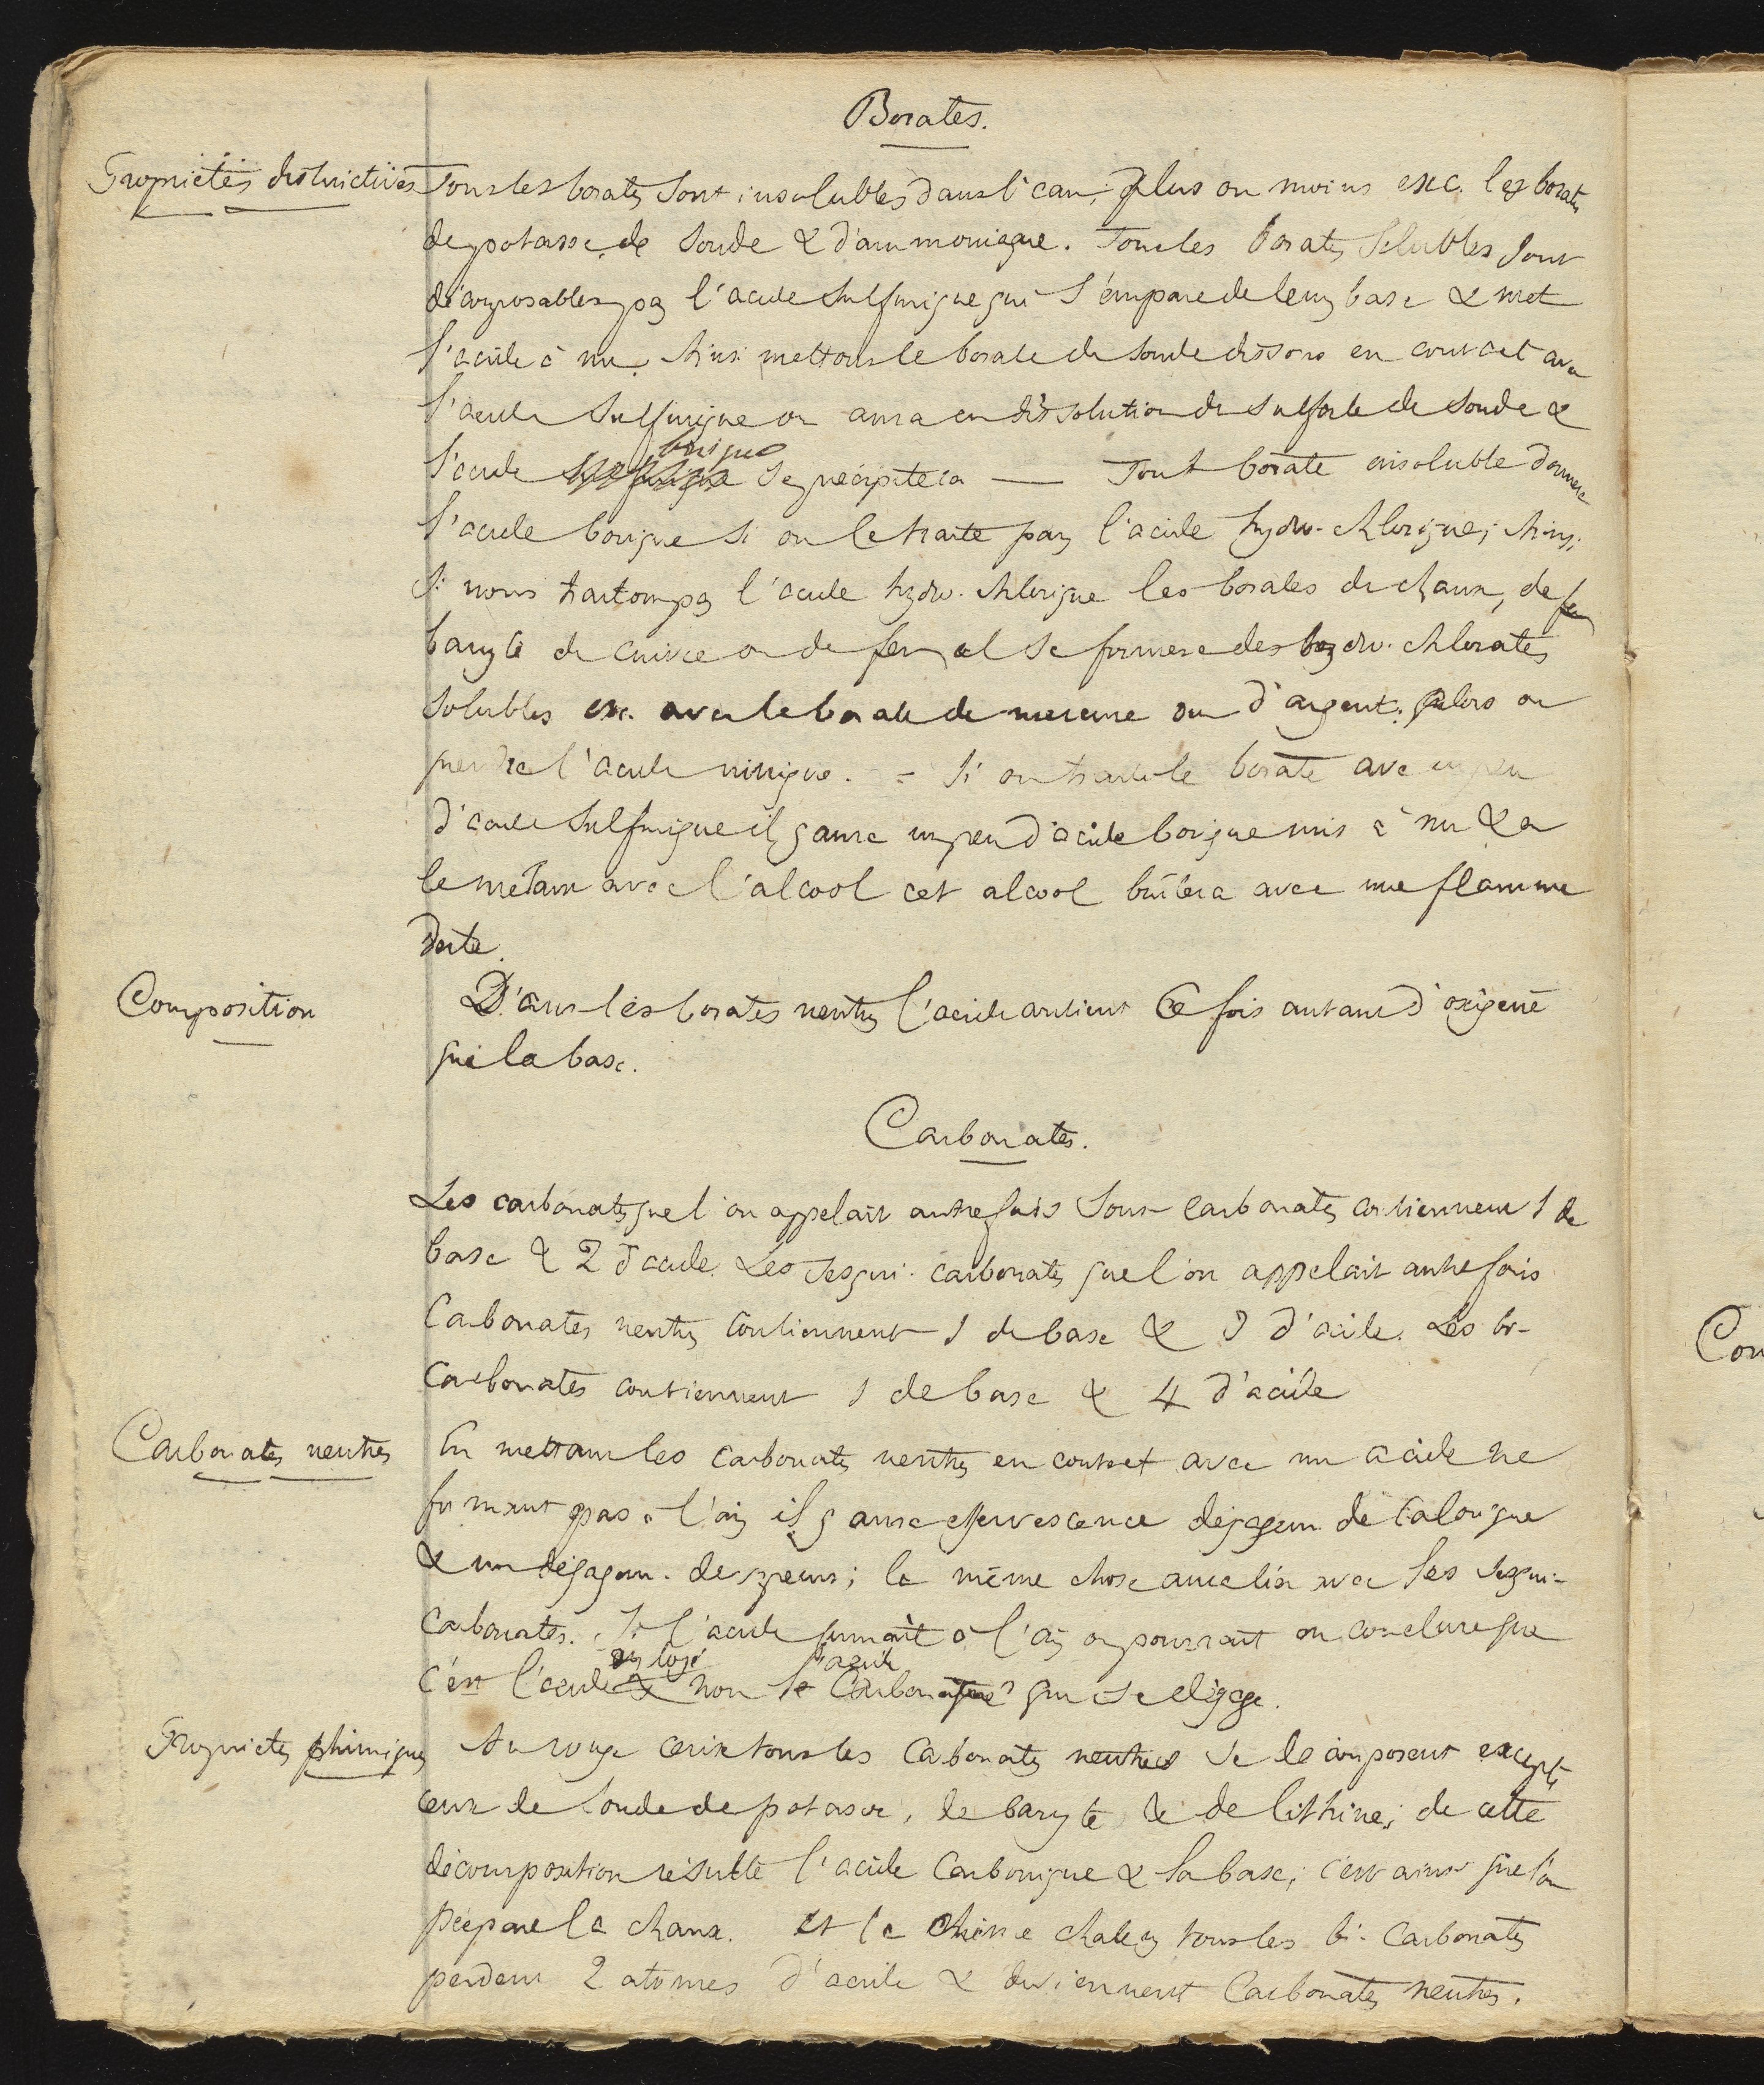 Borates.
Propriétés distinctives
Tous les borates sont insolubles dans l'eau, plus ou moins exc. les borates
de potasse, de soude & d'ammoniaque. Tous les borates solubles sont
décomposables par l'acide sulfurique qui s'empare de leur base & met
l'acide à nu. Ainsi mettons le borate de soude dissous en contact avec
l'acide sulfurique on aura en dissolution du sulfate de soude &
l'acide borique se précipitera — Tout borate insoluble donnera
l'acide borique si on le traite par l'acide hydro-chlorique; Ainsi
si nous traitons par l'acide hydro-chlorique les borates de chaux, de fer
baryte de cuivre ou de fer, il se formera des hydro-chlorates
solubles exc. avec le borate de mercure ou d'argent; alors on
prendra l'acide nitrique. = Si on traite le borate avec un peu
d'acide sulfurique il y aura un peu d'acide borique mis à nu & en
le mêlant avec l'alcool cet alcool brûlera avec une flamme
verte.
Composition
Dans les borates neutres l'acide contient 6 fois autant d'oxigène
que la base.
Carbonates.
Les carbonates que l'on appelait autrefois sous-carbonates contiennent 1 de
base & 2 d'acide. Les sesqui-carbonates que l'on appelait autrefois
Carbonates neutres contiennent 1 de base & 3 d'acide. Les bi-
Carbonates contiennent 1 de base & 4 d'acide
Carbonates neutres
En mettant les carbonates neutres en contact avec un acide ne
fumant pas à l'air il y aura effervescence dégagem. de calorique
& un dégagem. de vapeurs; la même chose aura lieu avec les sesqui-
Carbonates. Si l'acide fumait à l'air on pourrait en conclure que
c'est l'acide employé & non l'acide Carbonique qui se dégage.
Propriétés chimiques
Au rouge cerise tous les Carbonates neutres se décomposent excepté
ceux de soude de potasse, de baryte & de lithine; de cette
décomposition résulte l'acide Carbonique & la base; c'est ainsi que l'on
prépare la chaux. Et la même chaleur tous les bi-Carbonates
perdent 2 atomes d'acide & deviennent Carbonates neutres.